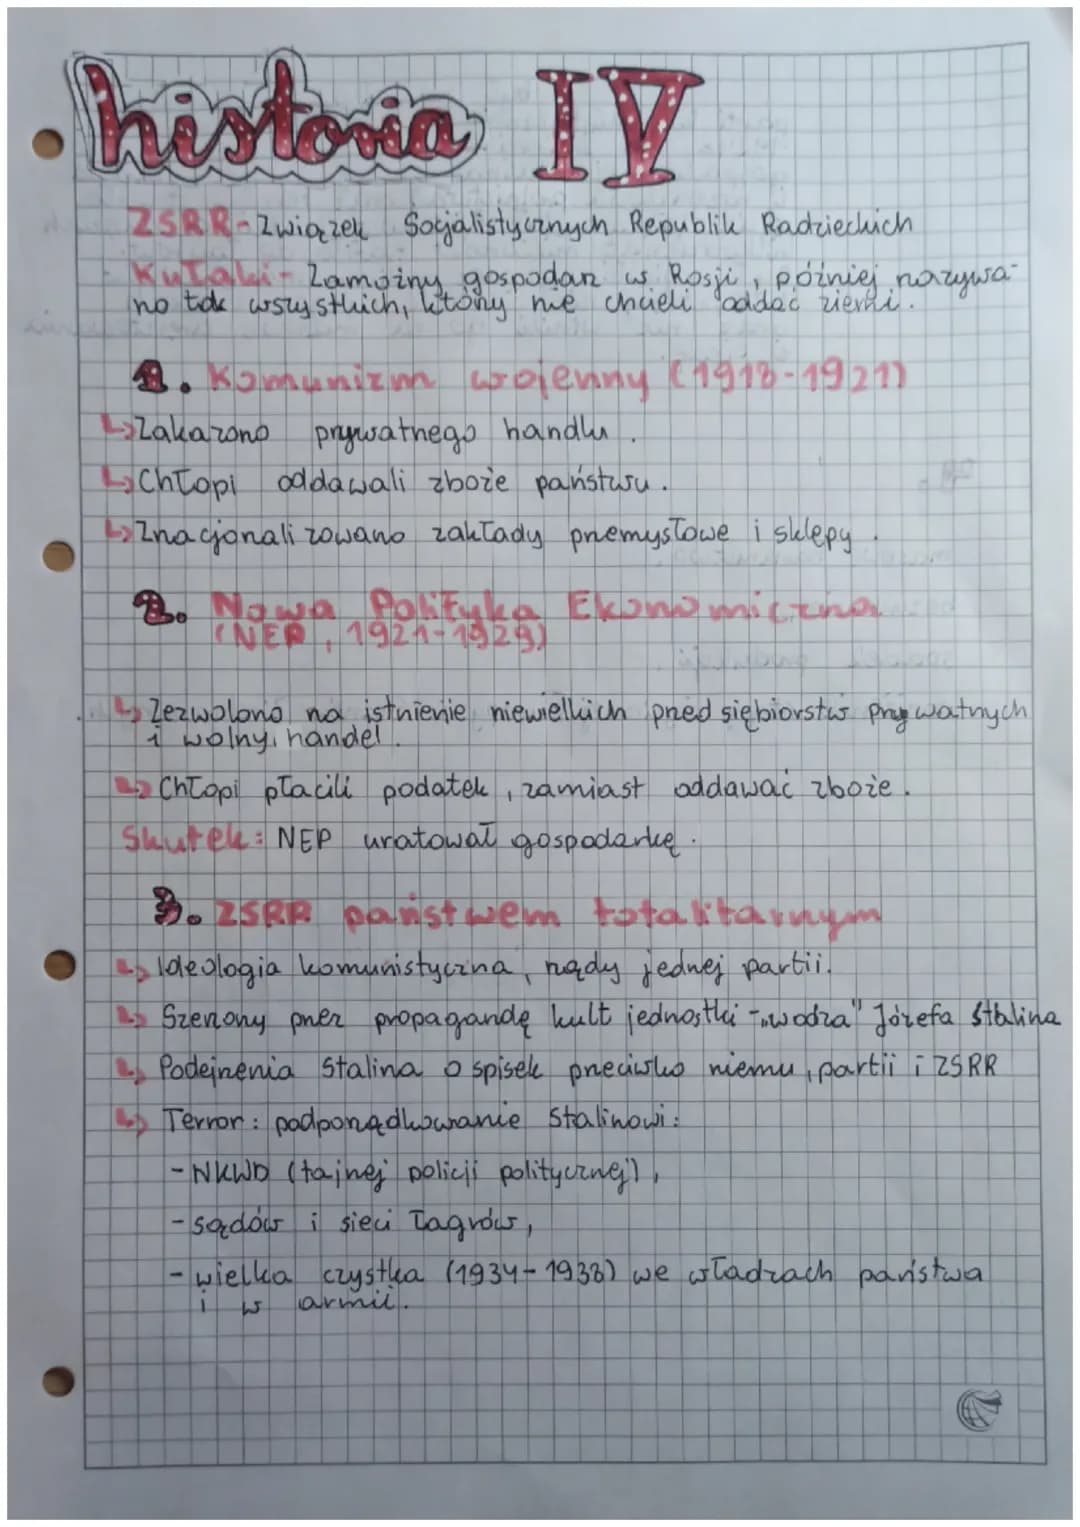 historia IV
ZSRR - Związek Socjalistycznych Republik Radzieckich
Kułaki - Zamożny gospodarz w Rosji, później nazywa-
no tak wszystkich, którzy nie chcieli oddać ziemi.
1. Komunizm wojenny (1918-1921)
↳ Zakazono prywatnego handlu.
↳ Chłopi oddawali zboże państwu.
↳ Znacjonalizowano zakłady przemysłowe i sklepy.
2. Nowa Polityka Ekonomiczna
(NEP, 1921-1929)
↳ Zezwolono na istnienie niewielkich przedsiębiorstw prywatnych
i wolny handel.
↳ Chłopi płacili podatek, zamiast oddawać zboże.
Skutek: NEP uratował gospodarkę.
3. ZSRR państwem totalitarnym
↳ Ideologia komunistyczna, rządy jednej partii.
↳ Szerzony przez propagandę kult jednostki - „wodza" Józefa Stalina
↳ Podejrzenia Stalina o spisek przeciwko niemu, partii i ZSRR
↳ Terror: podporządkowanie Stalinowi:
- NKWD (tajnej policji politycznej),
- sądów i sieci łagrów,
- wielka czystka (1934-1938) we władzach państwa
i w armii.